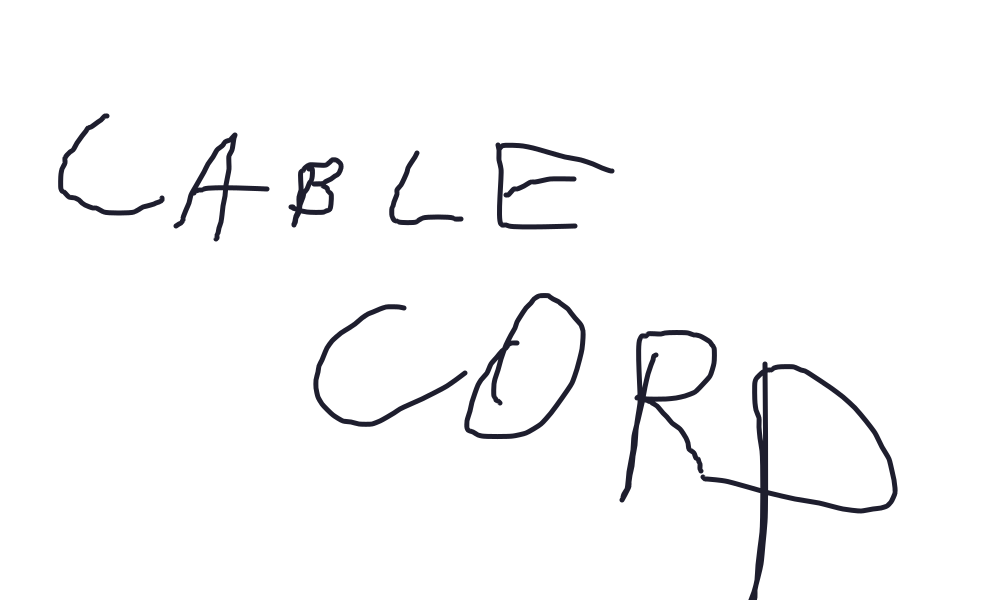 CABLE
CORP